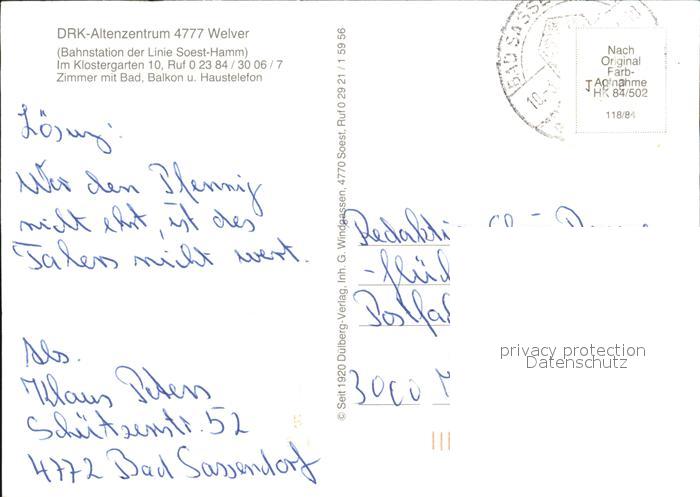 DRK-Altenzentrum 4777 Welver
(Bahnstation der Linie Soest-Hamm)
Im Klostergarten 10, Ruf 0 23 84 / 30 06 / 7
Zimmer mit Bad, Balkon u. Haustelefon
Lösung:
Wer den Pfennig
nicht ehrt, ist des
Talers nicht wert.
Abs.
Klaus Peters
Schützenstr. 52
4772 Bad Sassendorf
© Seit 1920 Dülberg-Verlag, Inh. G. Windgassen, 4770 Soest, Ruf 0 29 21 / 1 59 56
BAD SASSE
10.
Nach
Original
Farb-
Aufnahme
HK 84/502
118/84
Redakti
Postfa
3000
privacy protection
Datenschutz